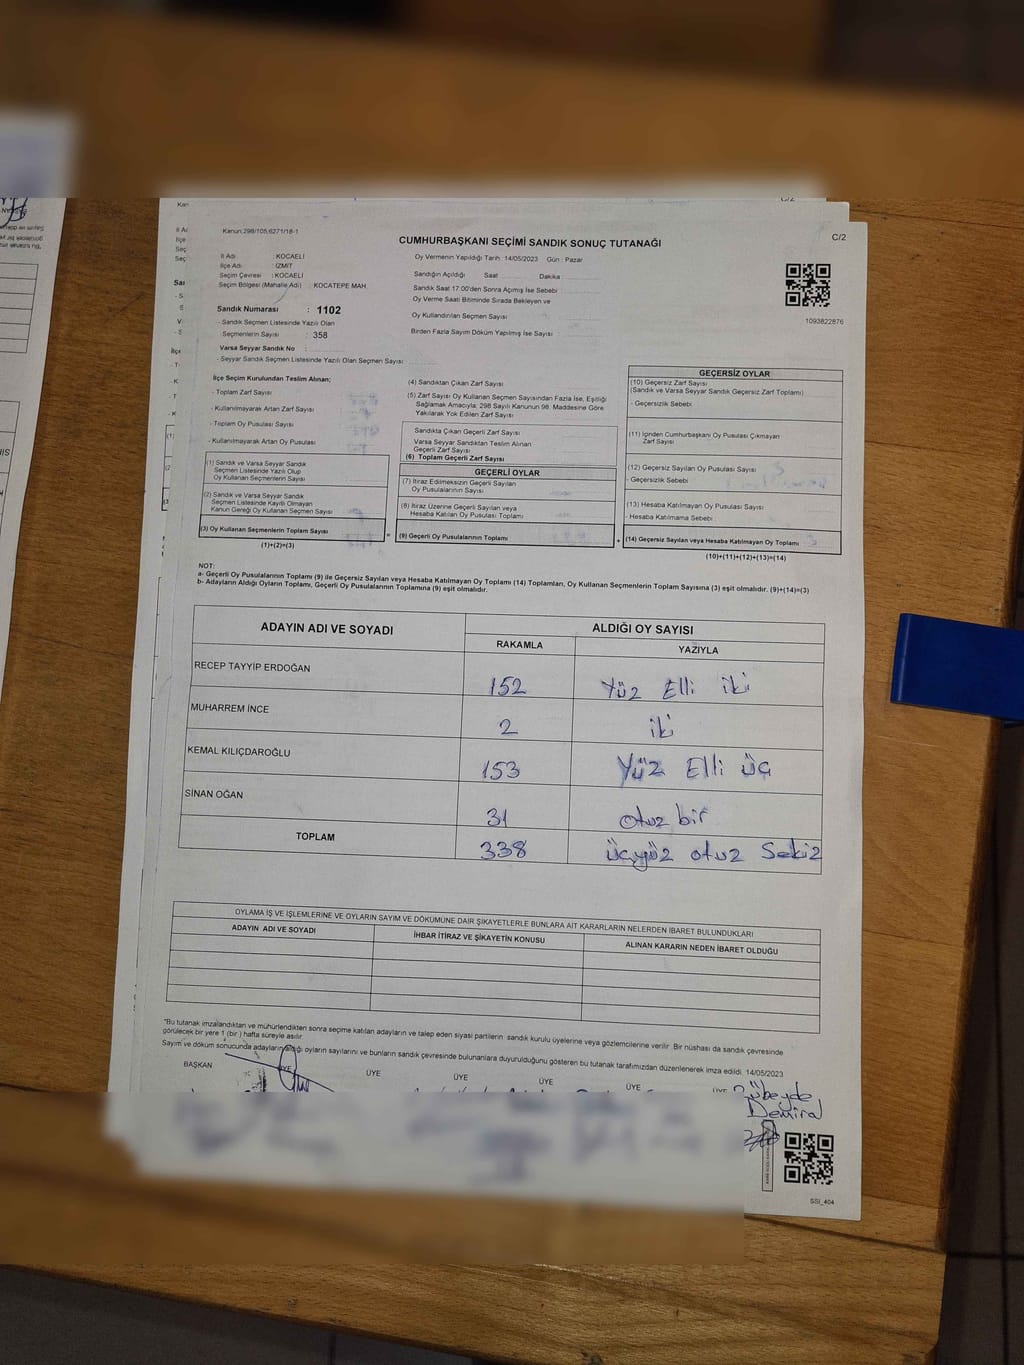 C/2
Kanun:298/105,6271/18-1
CUMHURBAŞKANI SEÇİMİ SANDIK SONUÇ TUTANAĞI
İl Adı : KOCAELİ
İlçe Adı : İZMİT
Seçim Çevresi : KOCAELİ
Seçim Bölgesi (Mahalle Adı) : KOCATEPE MAH.
Oy Vermenin Yapıldığı Tarih : 14/05/2023 Gün : Pazar
Sandığın Açıldığı Saat Dakika
Sandık Saat 17:00'den Sonra Açımış İse Sebebi
Oy Verme Saati Bitiminde Sırada Bekleyen ve
Oy Kullandırılan Seçmen Sayısı
Birden Fazla Sayım Döküm Yapılmış İse Sayısı
1093822876
Sandık Numarası : 1102
- Sandık Seçmen Listesinde Yazılı Olan
Seçmenlerin Sayısı : 358
Varsa Seyyar Sandık No :
- Seyyar Sandık Seçmen Listesinde Yazılı Olan Seçmen Sayısı
İlçe Seçim Kurulundan Teslim Alınan;
- Toplam Zarf Sayısı
- Kullanılmayarak Artan Zarf Sayısı
- Toplam Oy Pusulası Sayısı
- Kullanılmayarak Artan Oy Pusulası
(1) Sandık ve Varsa Seyyar Sandık
Seçmen Listesinde Yazılı Olup
Oy Kullanan Seçmenlerin Sayısı
(2) Sandık ve Varsa Seyyar Sandık
Seçmen Listesinde Kayıtlı Olmayan
Kanun Gereği Oy Kullanan Seçmen Sayısı
(3) Oy Kullanan Seçmenlerin Toplam Sayısı
(1)+(2)=(3)
(4) Sandıktan Çıkan Zarf Sayısı
(5) Zarf Sayısı Oy Kullanan Seçmen Sayısından Fazla İse, Eşitliği
Sağlamak Amacıyla; 298 Sayılı Kanunun 98. Maddesine Göre
Yakılarak Yok Edilen Zarf Sayısı
Sandıkta Çıkan Geçerli Zarf Sayısı
Varsa Seyyar Sandıktan Teslim Alınan
Geçerli Zarf Sayısı
(6) Toplam Geçerli Zarf Sayısı
GEÇERLİ OYLAR
(7) İtiraz Edilmeksizin Geçerli Sayılan
Oy Pusulalarının Sayısı
(8) İtiraz Üzerine Geçerli Sayılan veya
Hesaba Katılan Oy Pusulası Toplamı
(9) Geçerli Oy Pusulalarının Toplamı
GEÇERSİZ OYLAR
(10) Geçersiz Zarf Sayısı
(Sandık ve Varsa Seyyar Sandık Geçersiz Zarf Toplamı)
- Geçersizlik Sebebi
(11) İçinden Cumhurbaşkanı Oy Pusulası Çıkmayan
Zarf Sayısı
(12) Geçersiz Sayılan Oy Pusulası Sayısı
- Geçersizlik Sebebi
(13) Hesaba Katılmayan Oy Pusulası Sayısı
- Hesaba Katılmama Sebebi
(14) Geçersiz Sayılan veya Hesaba Katılmayan Oy Toplamı
(10)+(11)+(12)+(13)=(14)
NOT:
a- Geçerli Oy Pusulalarının Toplamı (9) ile Geçersiz Sayılan veya Hesaba Katılmayan Oy Toplamı (14) Toplamları, Oy Kullanan Seçmenlerin Toplam Sayısına (3) eşit olmalıdır. (9)+(14)=(3)
b- Adayların Aldığı Oyların Toplamı, Geçerli Oy Pusulalarının Toplamına (9) eşit olmalıdır.
ADAYIN ADI VE SOYADI ALDIĞI OY SAYISI
RAKAMLA YAZIYLA
RECEP TAYYİP ERDOĞAN 152 Yüz Elli iki
MUHARREM İNCE 2 iki
KEMAL KILIÇDAROĞLU 153 Yüz Elli üç
SİNAN OĞAN 31 otuz bir
TOPLAM 338 üçyüz otuz Sekiz
OYLAMA İŞ VE İŞLEMLERİNE VE OYLARIN SAYIM VE DÖKÜMÜNE DAİR ŞİKAYETLERLE BUNLARA AİT KARARLARIN NELERDEN İBARET BULUNDUKLARI
ADAYIN ADI VE SOYADI İHBAR İTİRAZ VE ŞİKAYETİN KONUSU ALINAN KARARIN NEDEN İBARET OLDUĞU
*Bu tutanak imzalandıktan ve mühürlendikten sonra seçime katılan adayların ve talep eden siyasi partilerin sandık kurulu üyelerine veya gözlemcilerine verilir. Bir nüshası da sandık çevresinde
görülecek bir yere 1 (bir) hafta süreyle asılır.
Sayım ve döküm sonucunda adayların aldığı oyların sayılarını ve bunların sandık çevresinde bulunanlara duyurulduğunu gösteren bu tutanak tarafımızdan düzenlenerek imza edildi. 14/05/2023
BAŞKAN ÜYE ÜYE ÜYE ÜYE ÜYE ÜYE
Demiral
SSI_404